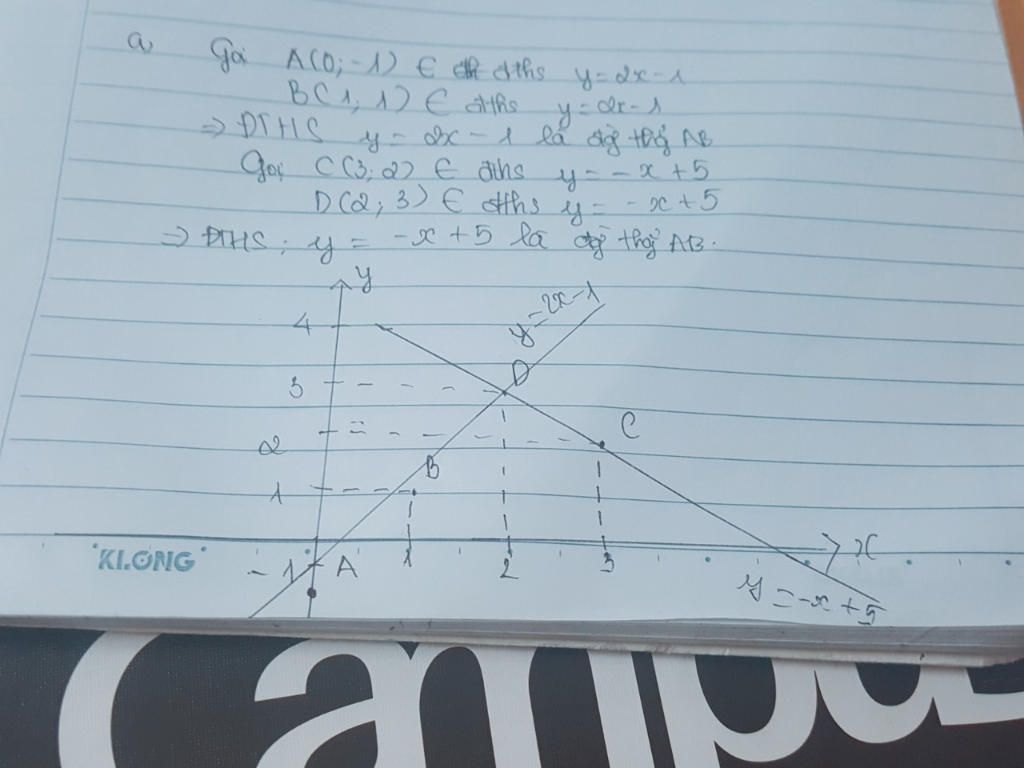 a, Gọi A(0; -1) ∈ đths y = 2x - 1
B(1; 1) ∈ đths y = 2x - 1
=> ĐTHS y = 2x - 1 là AB
Gọi C(3; 2) ∈ đths y = - x + 5
D(2; 3) ∈ đths y = - x + 5
=> ĐTHS: y = - x + 5 là AB.
y
y = 2x - 1
4
3
D
2
C
B
1
x
KLONG
- 1
A
1
2
3
y = -x + 5
Campus